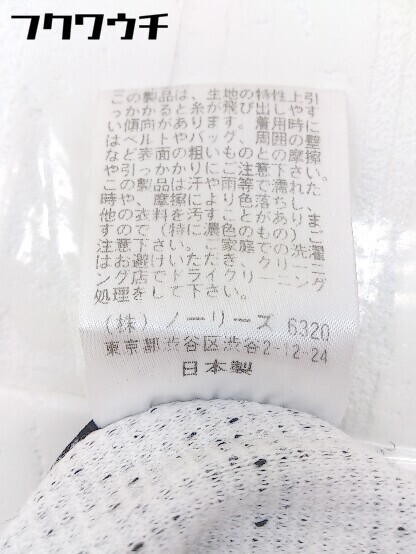 フクワウチ
この製品は、生地の特性上引
っかかると、糸が飛び出しやす
い傾向があります。着用時に
はベルトやバッグ、周囲の壁
など表面の粗いものとの摩擦
や引っかかりにご注意下さい。
この製品は汗や雨等で濡れた
時や、摩擦により色落ちし、
他の衣料を汚す
すので(特に濃色のもの)ご
注意下さい。ご家庭での洗濯
はお避けいただき、クリーニ
ング店でドライクリーニング
処理をして下さい。
(株)ノーリーズ 6320
東京都渋谷区渋谷2-12-24
日本製